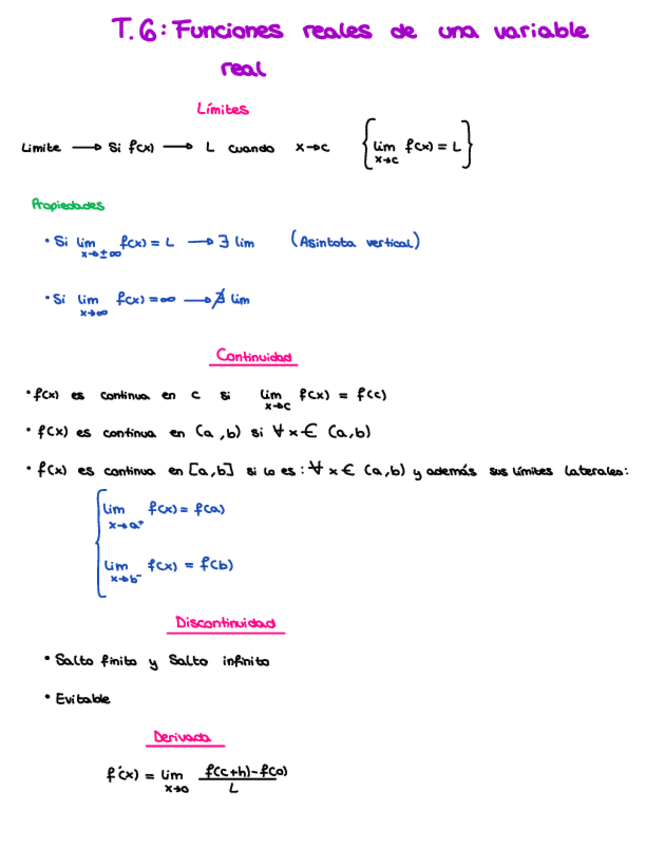 T.6: Funciones reales de una variable
real
Límites
Limite → Si f(x) → L cuando x→c { lim x→c f(x) = L }
Propiedades
• Si lim x→±∞ f(x) = L → ∃ lim (Asintota vertical)
• Si lim x→∞ f(x) = ∞ → ∄ lim
Continuidad
• f(x) es continua en c si lim x→c f(x) = f(c)
• f(x) es continua en (a,b) si ∀ x ∈ (a,b)
• f(x) es continua en [a,b] si lo es: ∀ x ∈ (a,b) y además sus límites laterales:
lim x→a⁺ f(x) = f(a)
lim x→b⁻ f(x) = f(b)
Discontinuidad
• Salto finito y Salto infinito
• Evitable
Derivada
f'(x) = lim x→0 f(c+h)-f(c)
L